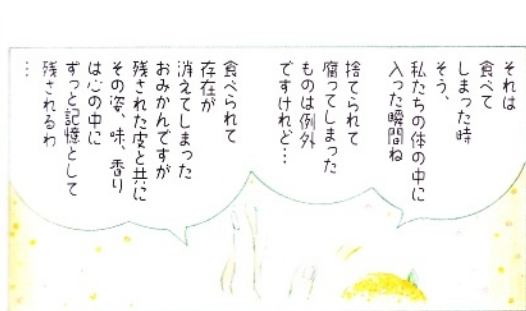 それは
食べて
しまった時
そう、
私たちの体の中に
入った瞬間ね
捨てられて
腐ってしまった
ものは例外
ですけれど…
食べられて
存在が
消えてしまった
おみかんですが
残された皮と共に
その姿、味、香り
は心の中に
ずっと記憶として
残されるわ
…